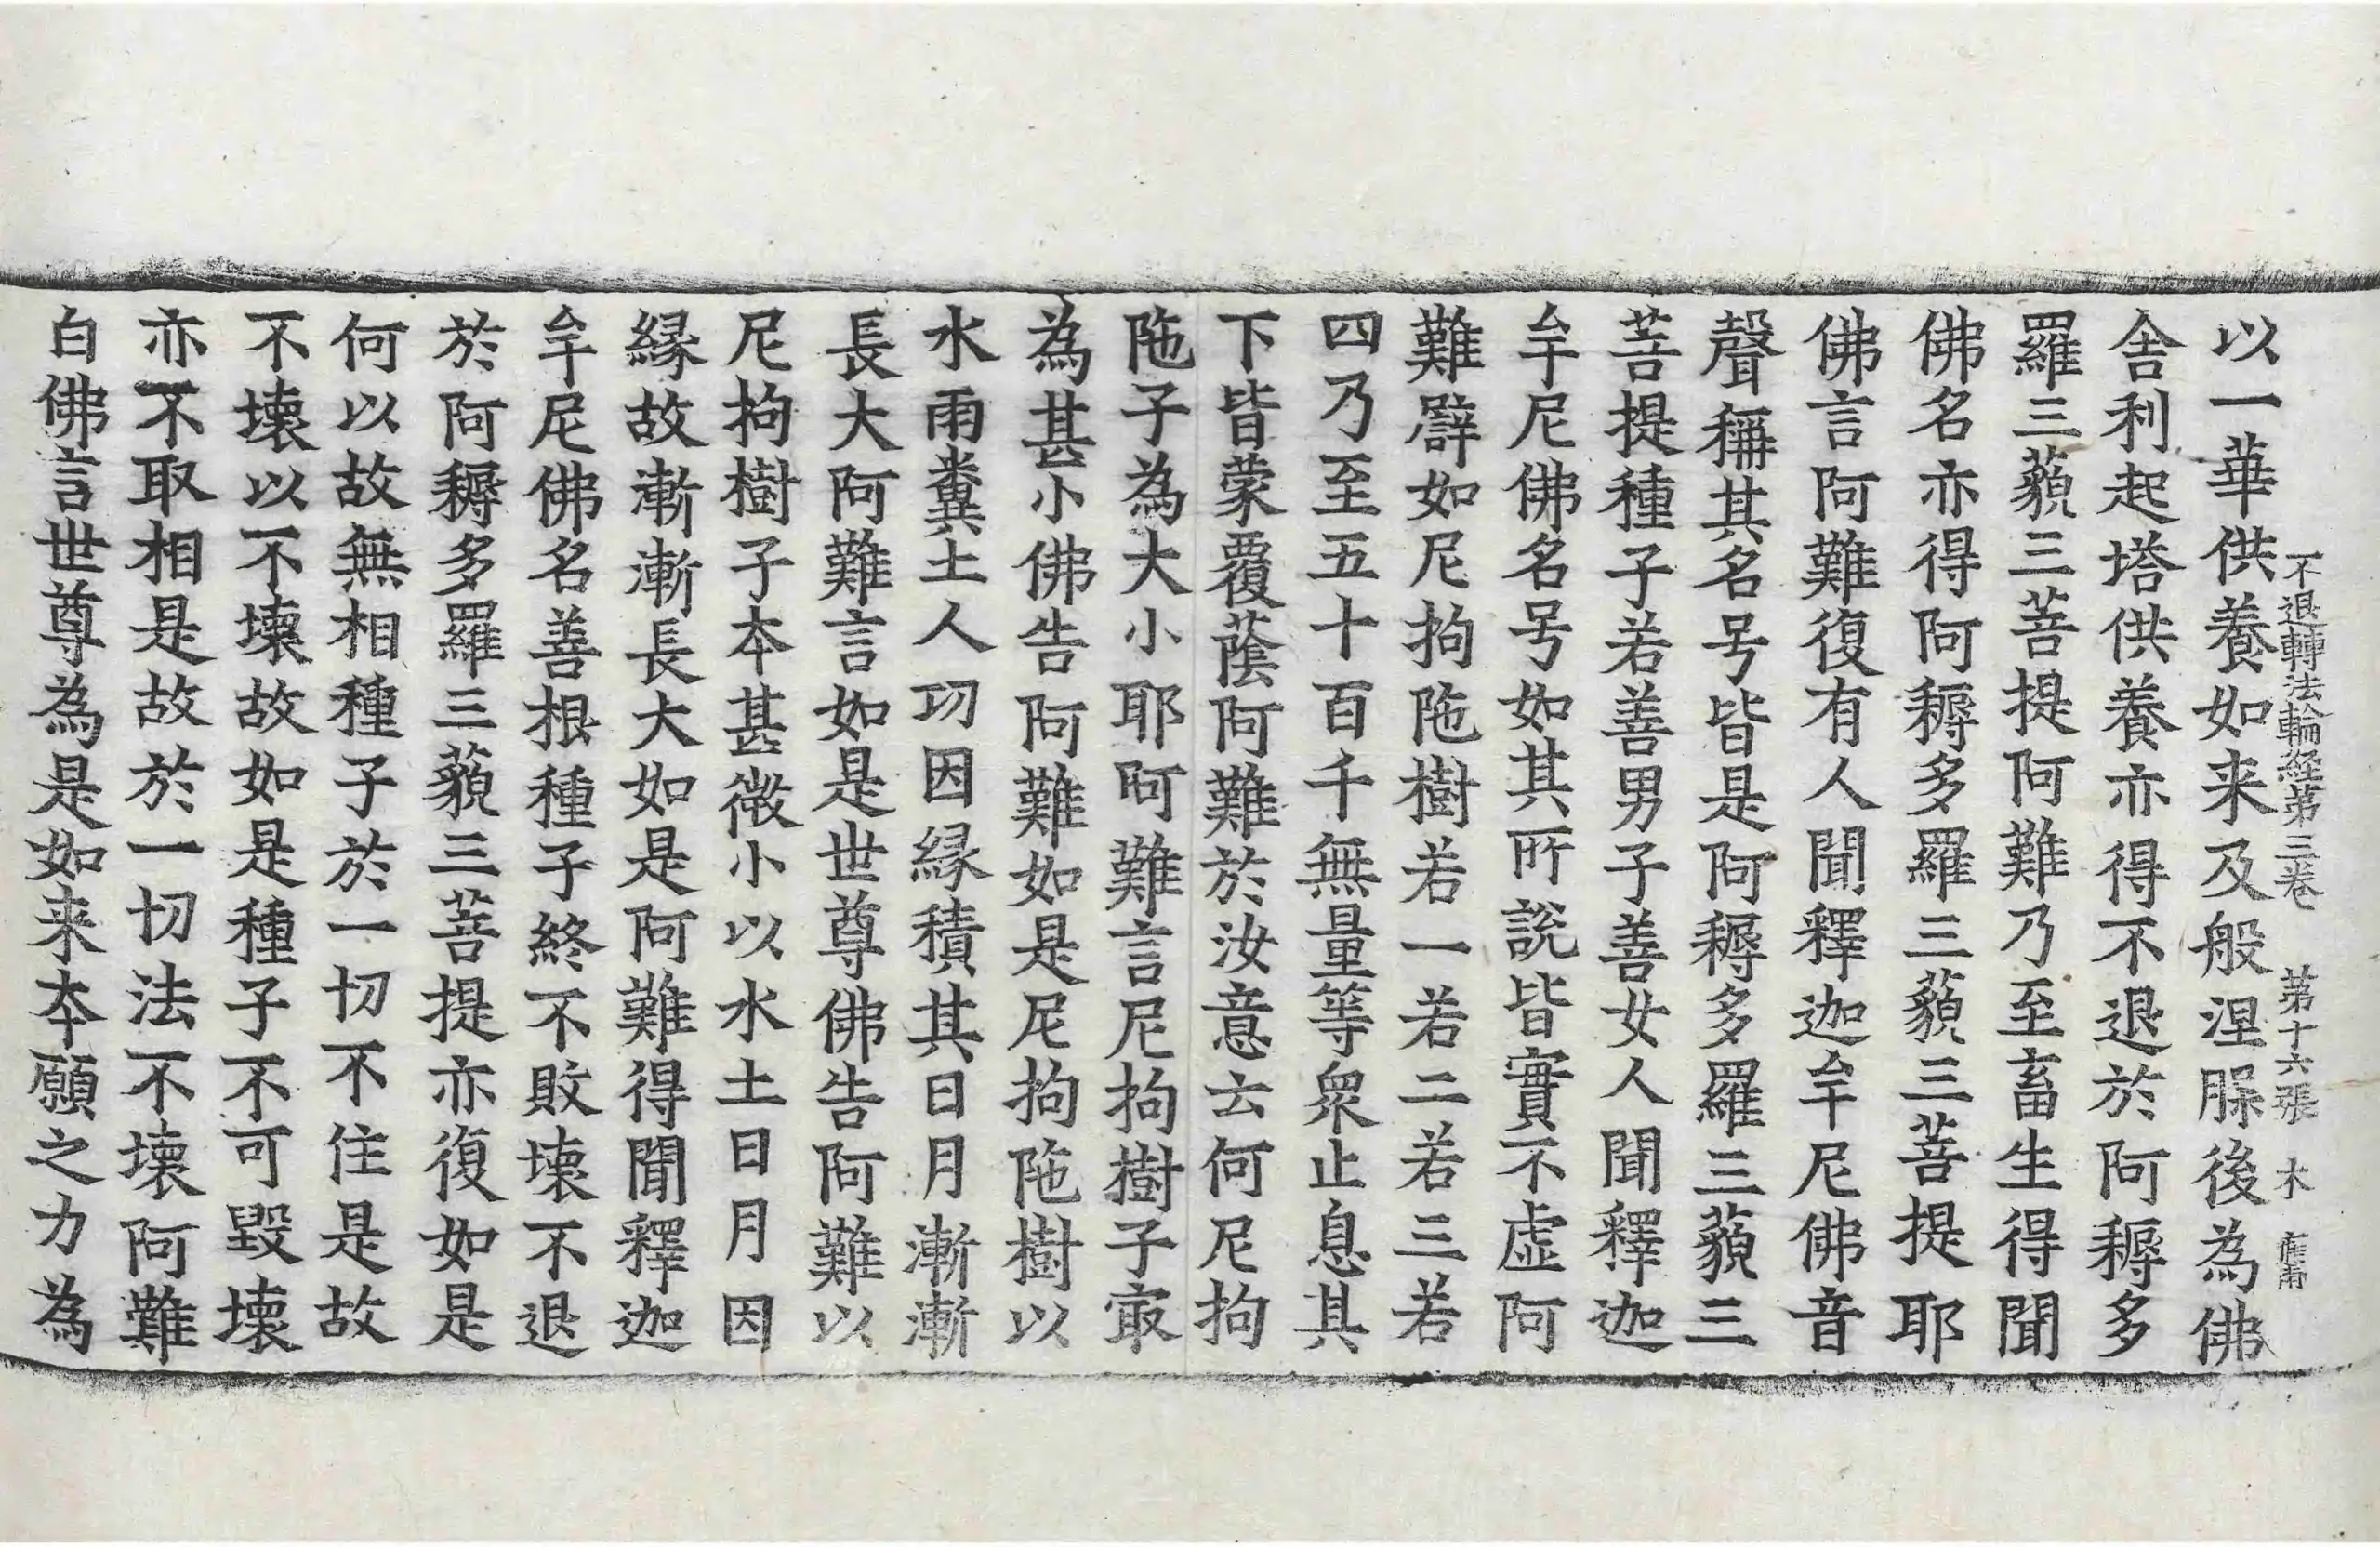 不退轉法輪經第三卷 第十六張 木
以一華供養如来及般涅脲後為佛
舎利起塔供養亦得不退於阿耨多
羅三藐三菩提阿難乃至畜生得聞
佛名亦得阿耨多羅三藐三菩提耶
佛言阿難復有人聞釋迦牟尼佛音
聲稱其名号皆是阿耨多羅三藐三
菩提種子若善男子善女人聞釋迦
牟尼佛名号如其所說皆實不虛阿
難譬如尼拘陁樹若一若二若三若
四乃至五十百千無量等衆止息其
下皆蒙覆蔭阿難於汝意云何尼拘
陁子為大小耶阿難言尼拘樹子㝡
為甚小佛告阿難如是尼拘陁樹以
水雨糞土人功因緣積其日月漸漸
長大阿難言如是世尊佛告阿難以
尼拘樹子本甚微小以水土日月因
緣故漸漸長大如是阿難得聞釋迦
牟尼佛名善根種子終不敗壞不退
於阿耨多羅三藐三菩提亦復如是
何以故無相種子於一切不住是故
不壞以不壞故如是種子不可毀壞
亦不取相是故於一切法不壞阿難
白佛言世尊為是如来本願之力為